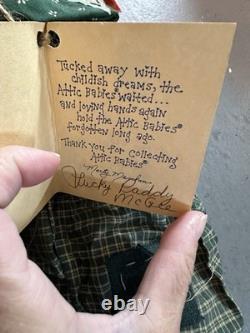 Tucked away with
childish dreams, the
Attic Babies waited...
and loving hands again
hold the Attic Babies®
forgotten long ago.
Thank you for collecting
Attic Babies®
Marty Maschino
Raddy
McGee